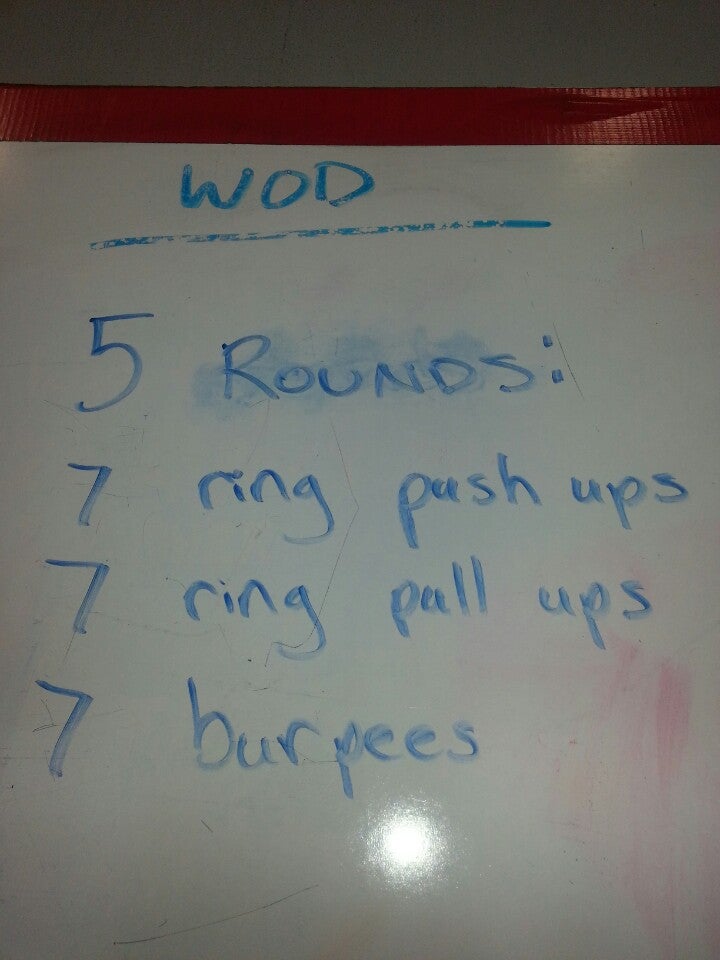 WOD
5 ROUNDS:
7 ring push ups
7 ring pull ups
7 burpees